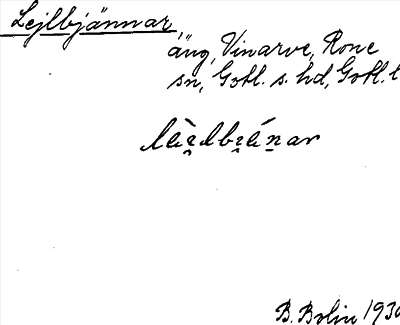 Lejlbjännar,
äng, Vinarve, Rone
sn, Gotl. s. hd, Gotl. l
B. Bolin 1930